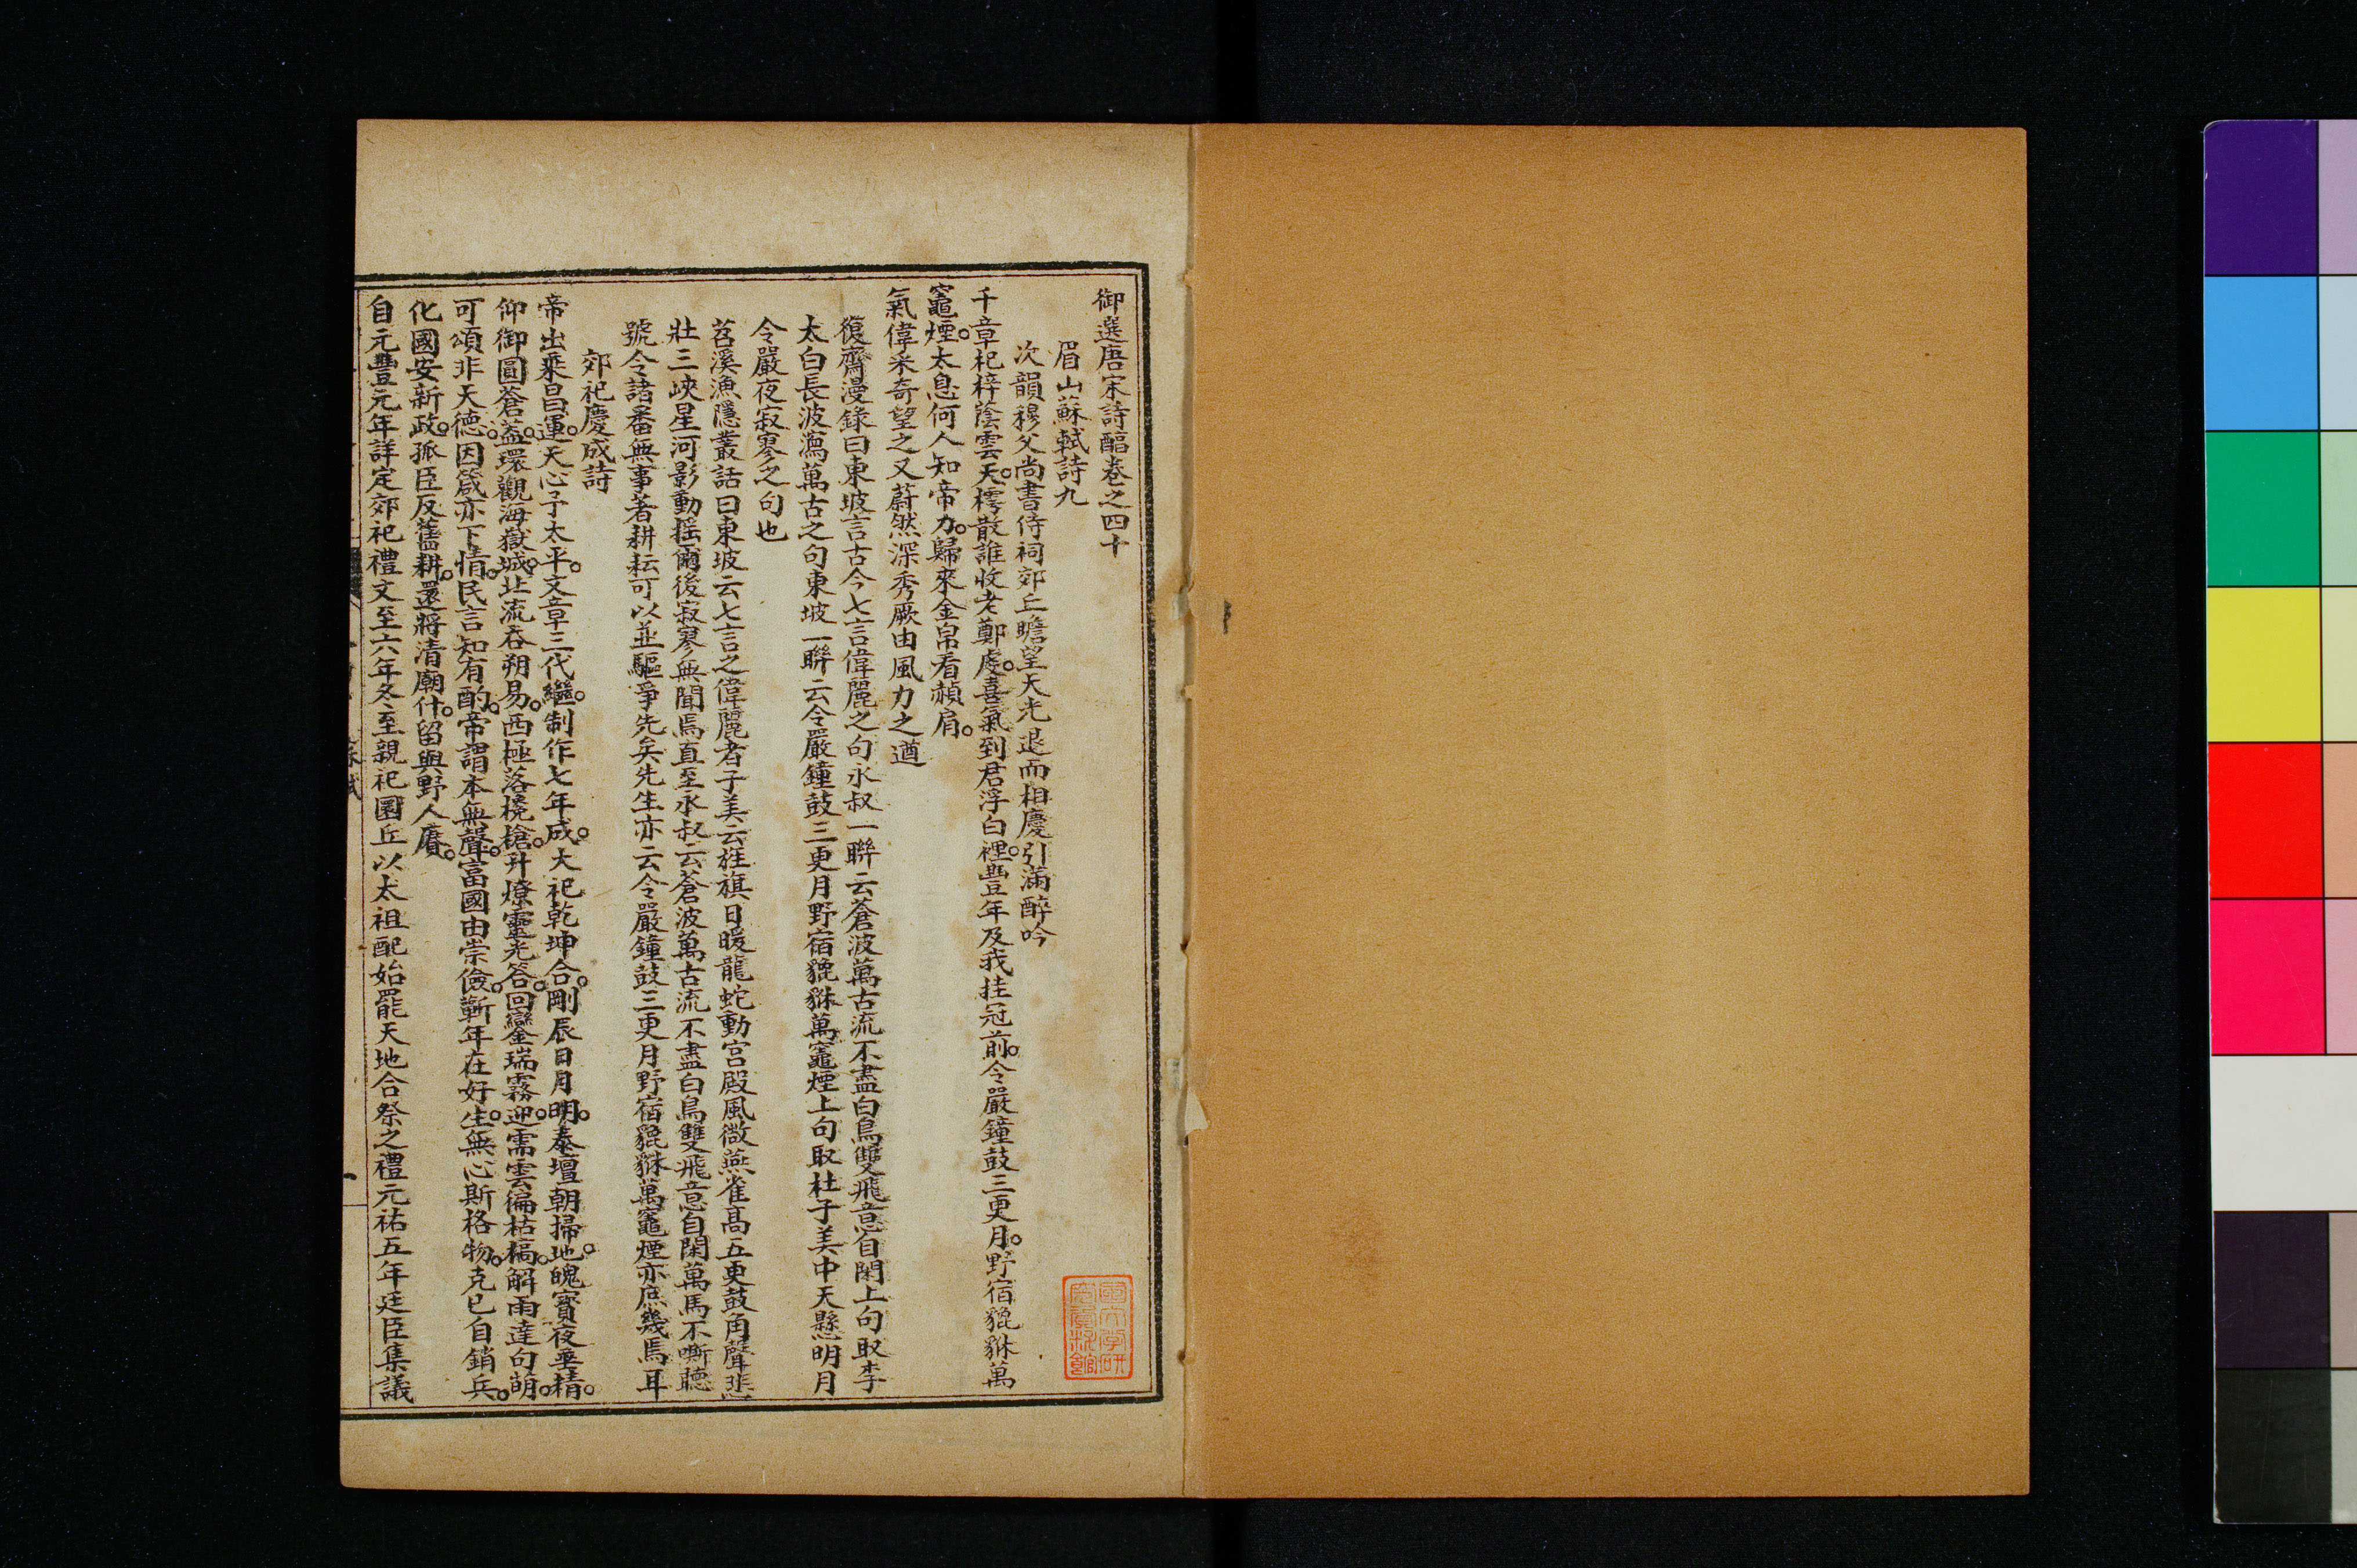 御選唐宋詩醕卷之四十
眉山蘇軾詩九
次韻穆父尚書侍祠郊丘瞻望天光退而相慶引滿醉吟
千章杞梓蔭雲天樗散誰收老鄭虔喜氣到君浮白裡豐年及我挂冠前令嚴鐘鼓三更月野宿貔貅萬
竈煙太息何人知帝力歸來金帛看赬肩
氣偉采奇望之又蔚然深秀厥由風力之遒
復齋漫錄曰東坡言古今七言偉麗之句永叔一聯云蒼波萬古流不盡白鳥雙飛意自閑上句取李
太白長波瀉萬古之句東坡一聯云令嚴鐘鼓三更月野宿貔貅萬竈煙上句取杜子美中天懸明月
令嚴夜寂寥之句也
苕溪漁隱叢話曰東坡云七言之偉麗者子美云旌旗日暖龍蛇動宫殿風微燕雀高五更鼓角聲悲
壯三峽星河影動搖爾後寂寥無聞焉直至永叔云蒼波萬古流不盡白鳥雙飛意自閑萬馬不嘶聽
號令諸番無事著耕耘可以並驅爭先矣先生亦云令嚴鐘鼓三更月野宿貔貅萬竈煙亦庶幾焉耳
郊祀慶成詩
帝出乘昌運天心予太平文章三代繼制作七年成大祀乾坤合剛辰日月明泰壇朝掃地魄寳夜垂精
仰御圓蒼蓋環觀海嶽城北流吞朔易西極落欃槍升燎靈光答回鑾瑞霧迎需雲徧枯槁解雨達句萌
可頌非天德因箴亦下情民言知有酌帝謂本無聲富國由崇儉蘄年在好生無心斯格物克已自銷兵
化國安新政孤臣反舊耕還將清廟什留與野人賡
自元豐元年詳定郊祀禮文至六年冬至親祀圜丘以太祖配始罷天地合祭之禮元祐五年廷臣集議
國文学研
究資料館